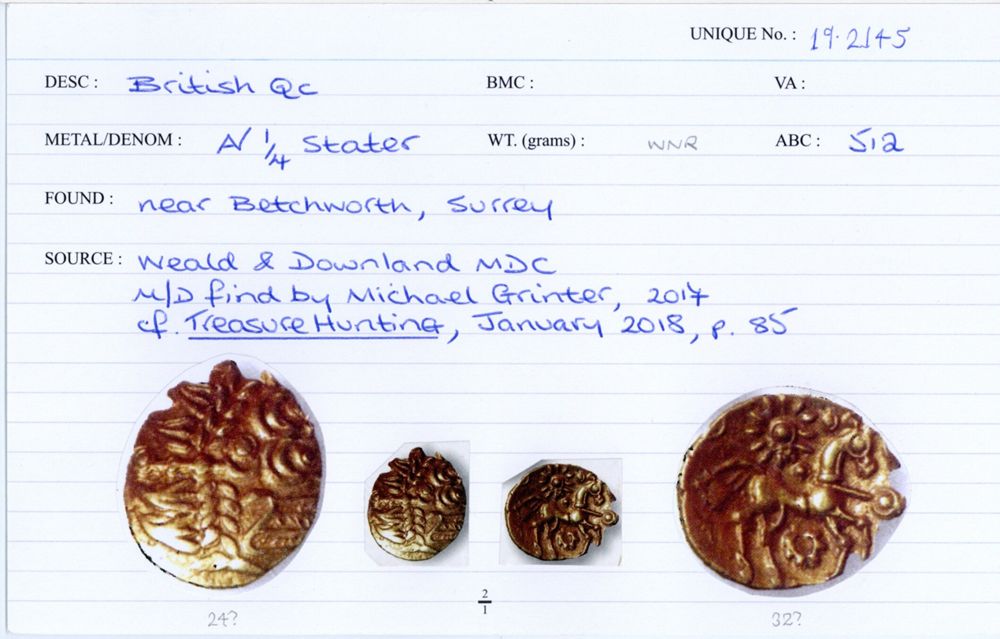 UNIQUE No. : 19.2145
DESC : British Qc BMC : VA :
METAL/DENOM : A/ 1/4 Stater WT. (grams) : WNR ABC : 512
FOUND : near Betchworth, Surrey
SOURCE : Weald & Downland MDC
M/D find by Michael Grinter, 2017
cf. Treasure Hunting, January 2018, p. 85
24? 2/1 32?